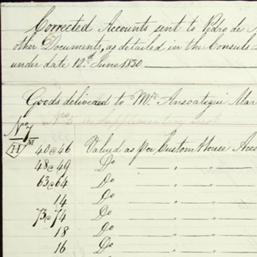 Corrected Accounts sent to Pedro de
other Documents, as detailed in the Consuls
under date 12th June 1830.
Goods delivered to Mr. Ansoategui Mar
No. 7
40 @ 46 Valued as per Custom House
48 @ 49 Do " "
63 @ 64 Do " "
14 Do " "
73 @ 74 Do " "
18 Do " "
16 Do " "